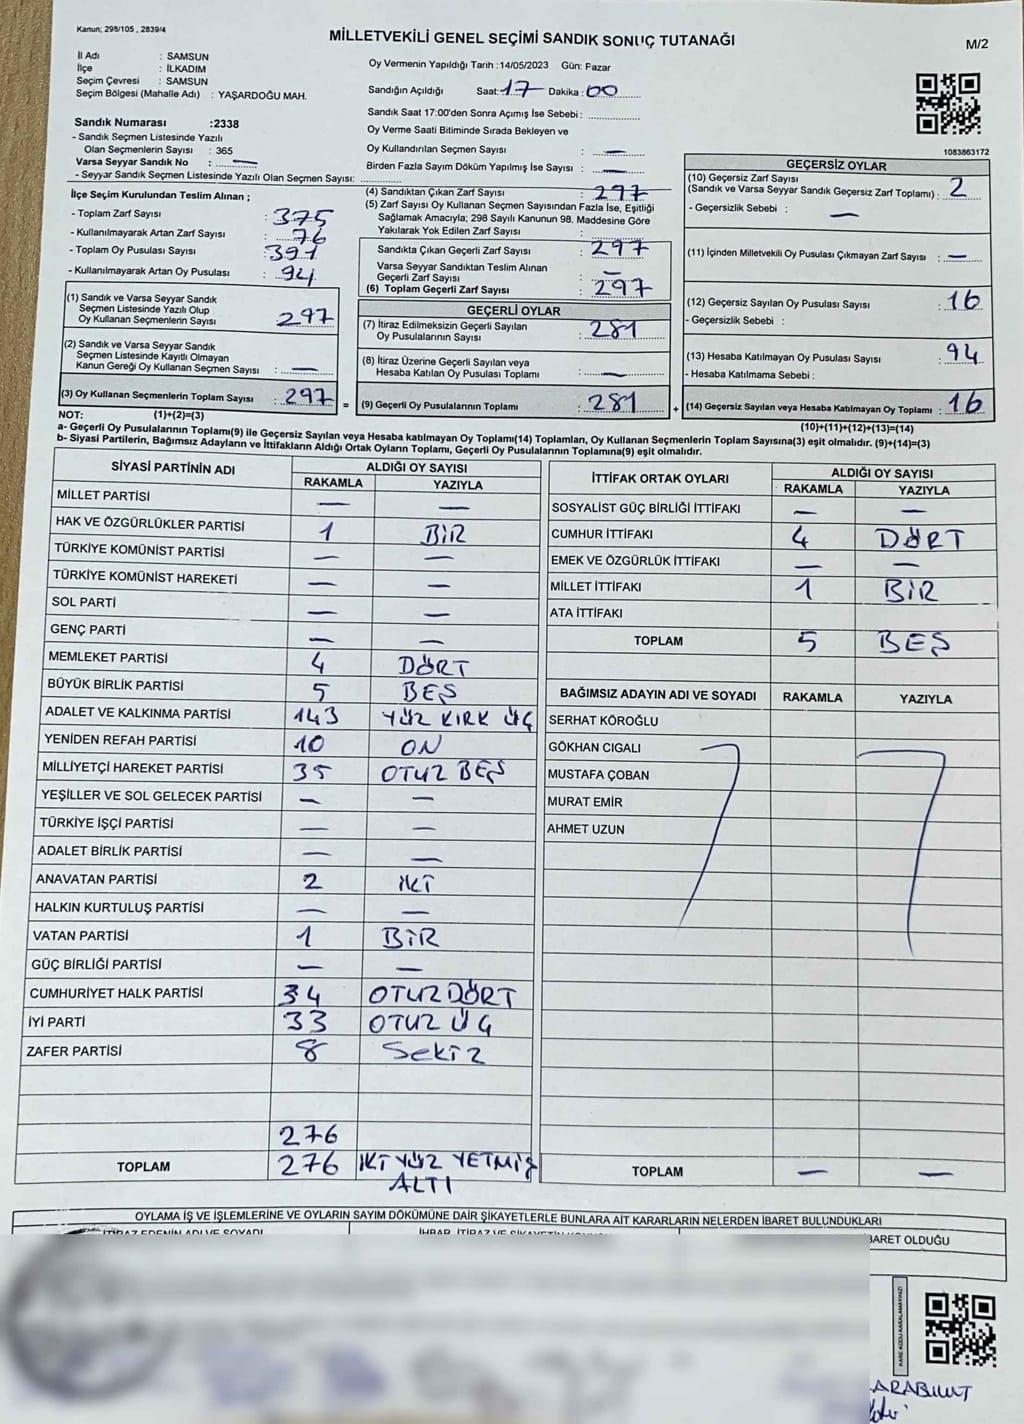 Kanun; 298/105 , 2839/4
MİLLETVEKİLİ GENEL SEÇİMİ SANDIK SONUÇ TUTANAĞI
M/2
İl Adı : SAMSUN
İlçe : İLKADIM
Seçim Çevresi : SAMSUN
Seçim Bölgesi (Mahalle Adı) : YAŞARDOĞU MAH.
Oy Vermenin Yapıldığı Tarih :14/05/2023 Gün: Pazar
Sandığın Açıldığı Saat: 17 Dakika : 00
Sandık Saat 17:00'den Sonra Açımış İse Sebebi :
Oy Verme Saati Bitiminde Sırada Bekleyen ve
Oy Kullandırılan Seçmen Sayısı : —
Birden Fazla Sayım Döküm Yapılmış İse Sayısı : —
1083863172
Sandık Numarası :2338
- Sandık Seçmen Listesinde Yazılı
Olan Seçmenlerin Sayısı : 365
Varsa Seyyar Sandık No : —
- Seyyar Sandık Seçmen Listesinde Yazılı Olan Seçmen Sayısı:
İlçe Seçim Kurulundan Teslim Alınan ;
- Toplam Zarf Sayısı : 375
- Kullanılmayarak Artan Zarf Sayısı : 76
- Toplam Oy Pusulası Sayısı : 391
- Kullanılmayarak Artan Oy Pusulası : 94
(1) Sandık ve Varsa Seyyar Sandık
Seçmen Listesinde Yazılı Olup
Oy Kullanan Seçmenlerin Sayısı : 297
(2) Sandık ve Varsa Seyyar Sandık
Seçmen Listesinde Kayıtlı Olmayan
Kanun Gereği Oy Kullanan Seçmen Sayısı : —
(3) Oy Kullanan Seçmenlerin Toplam Sayısı : 297
(4) Sandıktan Çıkan Zarf Sayısı : 297
(5) Zarf Sayısı Oy Kullanan Seçmen Sayısından Fazla İse, Eşitliği
Sağlamak Amacıyla; 298 Sayılı Kanunun 98. Maddesine Göre
Yakılarak Yok Edilen Zarf Sayısı :
Sandıkta Çıkan Geçerli Zarf Sayısı : 297
Varsa Seyyar Sandıktan Teslim Alınan
Geçerli Zarf Sayısı : —
(6) Toplam Geçerli Zarf Sayısı : 297
GEÇERLİ OYLAR
(7) İtiraz Edilmeksizin Geçerli Sayılan
Oy Pusulalarının Sayısı : 281
(8) İtiraz Üzerine Geçerli Sayılan veya
Hesaba Katılan Oy Pusulası Toplamı : —
= (9) Geçerli Oy Pusulalarının Toplamı : 281
GEÇERSİZ OYLAR
(10) Geçersiz Zarf Sayısı
(Sandık ve Varsa Seyyar Sandık Geçersiz Zarf Toplamı) : 2
- Geçersizlik Sebebi : —
(11) İçinden Milletvekili Oy Pusulası Çıkmayan Zarf Sayısı : —
(12) Geçersiz Sayılan Oy Pusulası Sayısı : 16
- Geçersizlik Sebebi :
(13) Hesaba Katılmayan Oy Pusulası Sayısı : 94
- Hesaba Katılmama Sebebi :
+ (14) Geçersiz Sayılan veya Hesaba Katılmayan Oy Toplamı : 16
NOT: (1)+(2)=(3)
(10)+(11)+(12)+(13)=(14)
a- Geçerli Oy Pusulalarının Toplamı(9) ile Geçersiz Sayılan veya Hesaba katılmayan Oy Toplamı(14) Toplamları, Oy Kullanan Seçmenlerin Toplam Sayısına(3) eşit olmalıdır. (9)+(14)=(3)
b- Siyasi Partilerin, Bağımsız Adayların ve İttifakların Aldığı Ortak Oyların Toplamı, Geçerli Oy Pusulalarının Toplamına(9) eşit olmalıdır.
SİYASİ PARTİNİN ADI ALDIĞI OY SAYISI
RAKAMLA YAZIYLA
MİLLET PARTİSİ — —
HAK VE ÖZGÜRLÜKLER PARTİSİ 1 BİR
TÜRKİYE KOMÜNİST PARTİSİ — —
TÜRKİYE KOMÜNİST HAREKETİ — —
SOL PARTİ — —
GENÇ PARTİ — —
MEMLEKET PARTİSİ 4 DÖRT
BÜYÜK BİRLİK PARTİSİ 5 BEŞ
ADALET VE KALKINMA PARTİSİ 143 YÜZ KIRK ÜÇ
YENİDEN REFAH PARTİSİ 10 ON
MİLLİYETÇİ HAREKET PARTİSİ 35 OTUZ BEŞ
YEŞİLLER VE SOL GELECEK PARTİSİ — —
TÜRKİYE İŞÇİ PARTİSİ — —
ADALET BİRLİK PARTİSİ — —
ANAVATAN PARTİSİ 2 İKİ
HALKIN KURTULUŞ PARTİSİ — —
VATAN PARTİSİ 1 BİR
GÜÇ BİRLİĞİ PARTİSİ — —
CUMHURİYET HALK PARTİSİ 34 OTUZ DÖRT
İYİ PARTİ 33 OTUZ ÜÇ
ZAFER PARTİSİ 8 SEKİZ
276
TOPLAM 276 İKİ YÜZ YETMİŞ
ALTI
İTTİFAK ORTAK OYLARI ALDIĞI OY SAYISI
RAKAMLA YAZIYLA
SOSYALİST GÜÇ BİRLİĞİ İTTİFAKI — —
CUMHUR İTTİFAKI 4 DÖRT
EMEK VE ÖZGÜRLÜK İTTİFAKI — —
MİLLET İTTİFAKI 1 BİR
ATA İTTİFAKI
TOPLAM 5 BEŞ
BAĞIMSIZ ADAYIN ADI VE SOYADI RAKAMLA YAZIYLA
SERHAT KÖROĞLU
GÖKHAN CIGALI
MUSTAFA ÇOBAN
MURAT EMİR
AHMET UZUN
TOPLAM — —
OYLAMA İŞ VE İŞLEMLERİNE VE OYLARIN SAYIM DÖKÜMÜNE DAİR ŞİKAYETLERLE BUNLARA AİT KARARLARIN NELERDEN İBARET BULUNDUKLARI
İTİRAZ EDENİN ADI VE SOYADI
BARET OLDUĞU
KARE KODU KARALAMAYINIZ!
ARABULUT